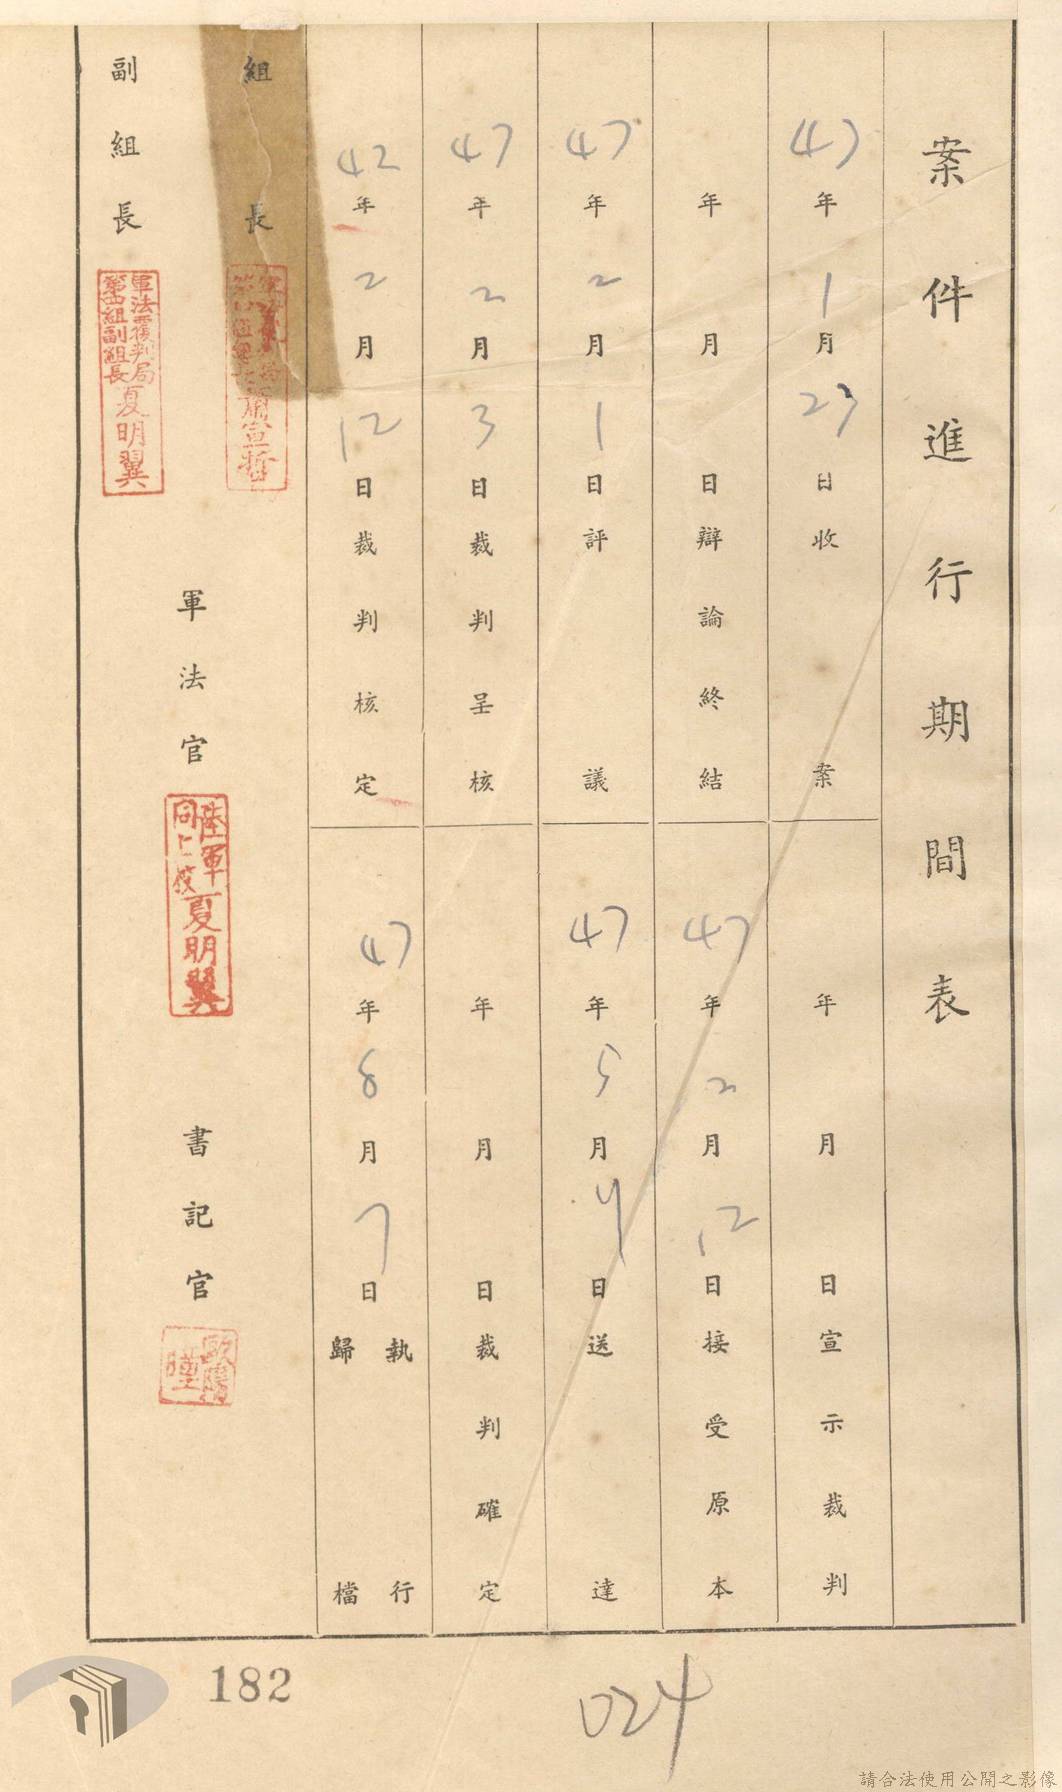 案件進行期間表
47年1月23日收案
年月日宣示裁判
年月日辯論終結
47年2月12日接受原本
47年2月1日評議
47年5月9日送達
47年2月3日裁判呈核
年月日裁判確定
42年2月12日裁判核定
47年8月7日執行
歸檔
組長
蕭宣哲
軍法官
陸軍
同上校
夏明翼
書記官
副組長
軍法覆判局
第四組副組長
夏明翼
182
024
請合法使用公開之影像